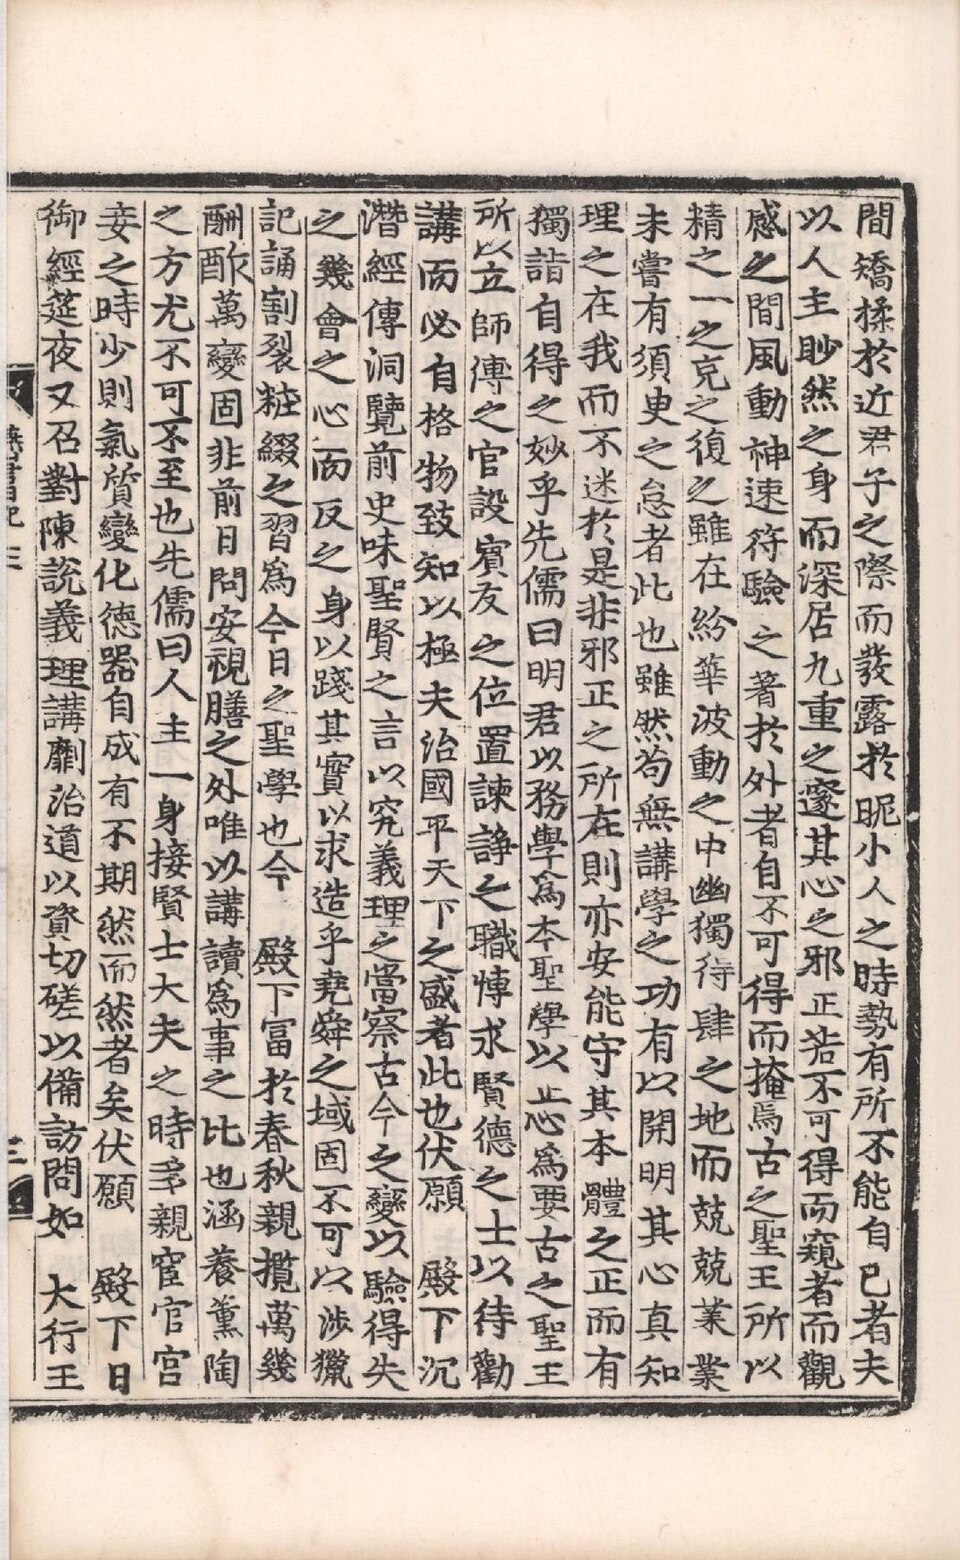 間矯揉於近君子之際而發露於昵小人之時勢有所不能自已者夫
以人主眇然之身而深居九重之邃其心之邪正若不可得而窺者而觀
感之間風動神速符驗之著於外者自不可得而掩焉古之聖王所以
精之一之克之復之雖在紛華波動之中幽獨得肆之地而兢兢業業
未嘗有須臾之怠者此也雖然苟無講學之功有以開明其心真知
理之在我而不迷於是非邪正之所在則亦安能守其本體之正而有
獨詣自得之妙乎先儒曰明君以務學爲本聖學以正心爲要古之聖王
所以立師傅之官設賓友之位置諫諍之職博求賢德之士以待勸
講而必自格物致知以極夫治國平天下之盛者此也伏願 殿下沉
潛經傳洞覽前史味聖賢之言以究義理之當察古今之變以驗得失
之幾會之心而反之身以踐其實以求造乎堯舜之域固不可以涉獵
記誦割裂粧綴之習爲今日之聖學也今 殿下富於春秋親攬萬幾
酬酢萬變固非前日問安視膳之外唯以講讀爲事之比也涵養薰陶
之方尤不可不至也先儒曰人主一身接賢士大夫之時多親宦官宮
妾之時少則氣質變化德器自成有不期然而然者矣伏願 殿下日
御經筵夜又召對陳說義理講劘治道以資切磋以備訪問如 大行王
三